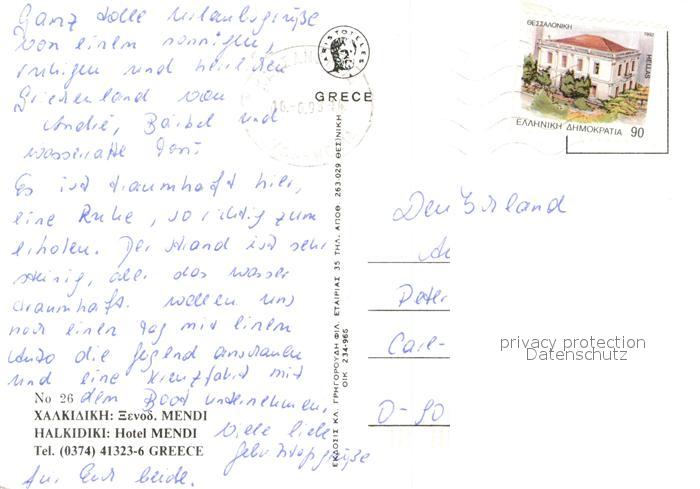 Ganz tolle Urlaubsgrüße
von einem sonnigen,
ruhigen und herrlichen
Griechenland von
André, Bärbel und
wasserratte Toni.
Es ist traumhaft hier,
eine Ruhe, so richtig zum
erholen. Der Strand ist sehr
steinig, aber das Wasser
traumhaft. Wollen uns
noch einen Tag mit einem
Auto die Gegend anschauen
und eine Kreuzfahrt mit
dem Boot unternehmen.
Viele liebe
Geburtstagsgrüße
für Euch beide.
No 26
ΧΑΛΚΙΔΙΚΗ: Ξενοδ. MENDI
HALKIDIKI: Hotel MENDI
Tel. (0374) 41323-6 GREECE
ΕΚΔΟΣΙΣ ΚΛ. ΓΡΗΓΟΡΟΥΔΗ ΦΙΛ. ΕΤΑΙΡΙΑΣ 35 ΤΗΛ. ΑΠΟΘ. 263-029 ΘΕΣ/ΝΙΚΗ
ΟΙΚ 234-965
ARISTOTELES
GRECE
ΘΕΣΣΑΛΟΝΙΚΗ
1992
HELLAS
ΕΛΛΗΝΙΚΗ ΔΗΜΟΚΡΑΤΙΑ 90
Deutschland
Peter
Carl-
D-90
privacy protection
Datenschutz